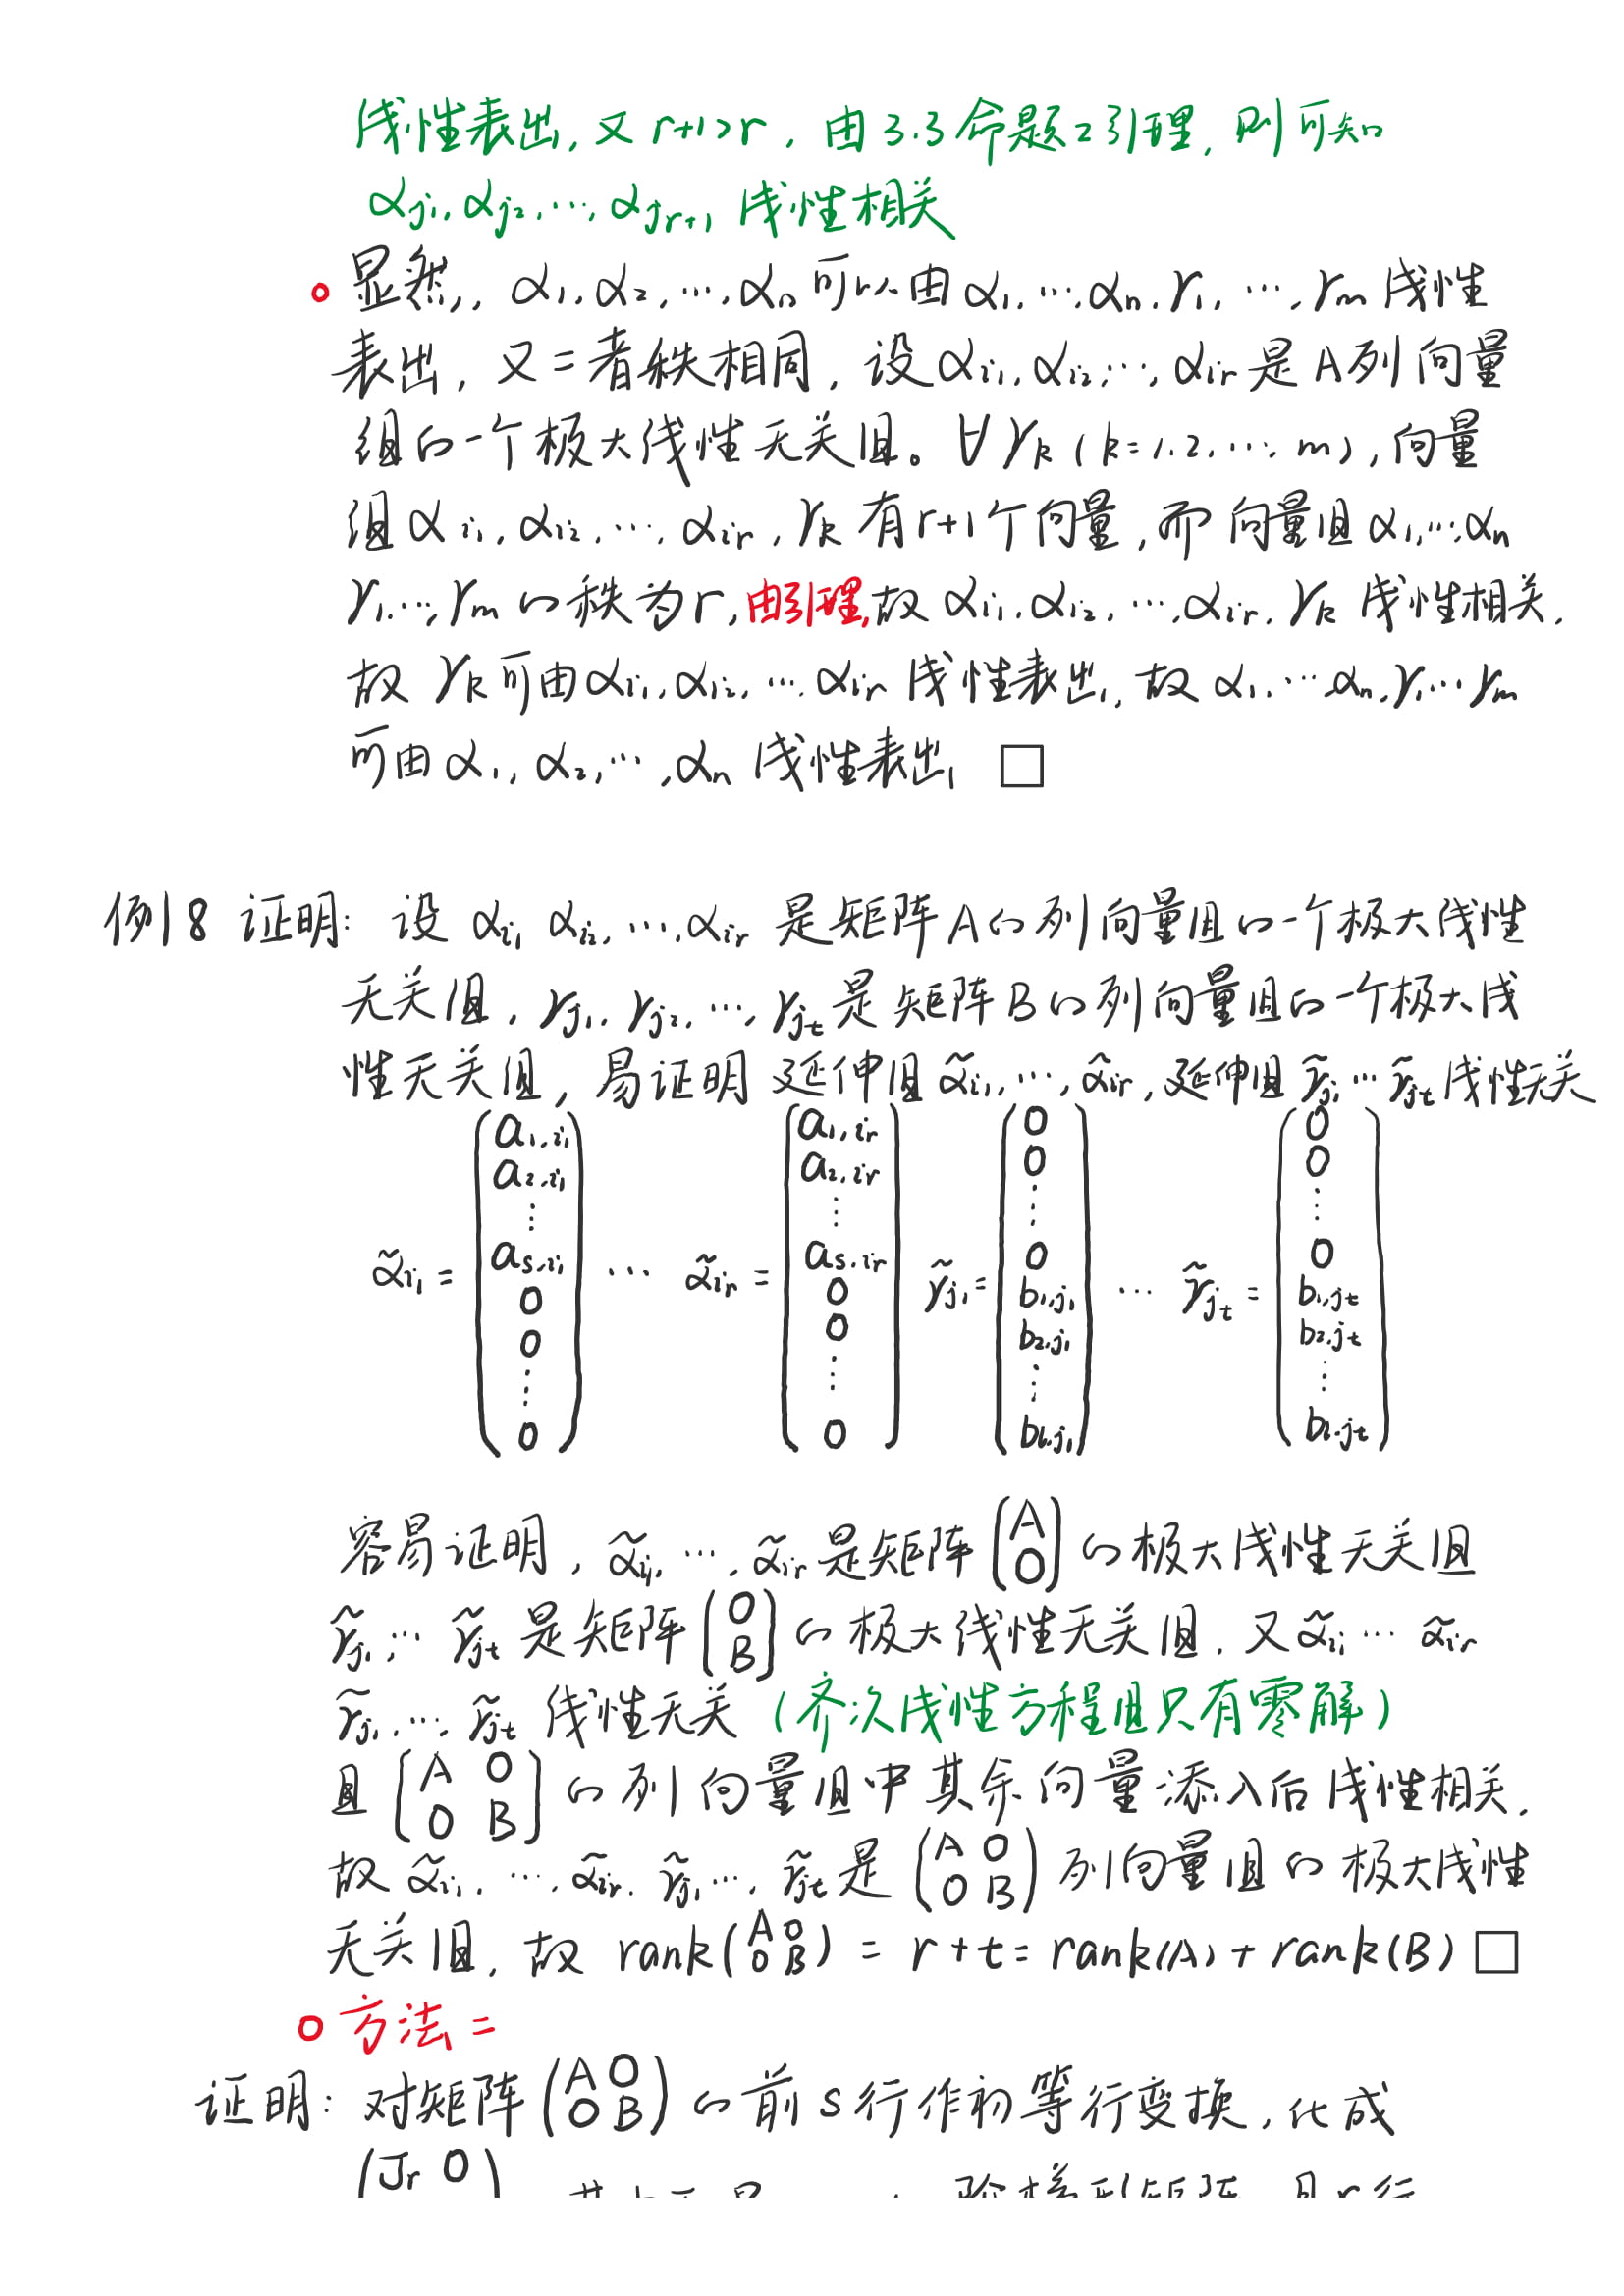 线性表出,又 r+1>r,由3.3命题2引理,则可知
αj₁,αj₂,⋯,αjᵣ₊₁ 线性相关
显然,α₁,α₂,⋯,αₙ可以由α₁,⋯,αₙ,γ₁,⋯,γₘ线性
表出,又二者秩相同,设αi₁,αi₂,⋯,αiᵣ是A列向量
组的一个极大线性无关组。∀γₖ(k=1,2,⋯,m),向量
组αi₁,αi₂,⋯,αiᵣ,γₖ有r+1个向量,而向量组α₁,⋯,αₙ
γ₁,⋯,γₘ的秩为r,由引理,故αi₁,αi₂,⋯,αiᵣ,γₖ线性相关,
故γₖ可由αi₁,αi₂,⋯,αiᵣ线性表出,故α₁,⋯,αₙ,γ₁⋯γₘ
可由α₁,α₂,⋯,αₙ线性表出 □
例8 证明:设αi₁ αi₂,⋯,αiᵣ是矩阵A的列向量组的一个极大线性
无关组,γj₁,γj₂,⋯,γjₜ是矩阵B的列向量组的一个极大线
性无关组,易证明延伸组α̃i₁,⋯,α̃iᵣ,延伸组γ̃j₁⋯γ̃jₜ线性无关
α̃i₁=(a₁,i₁ a₂,i₁ ⋮ aₛ,i₁ 0 0 ⋮ 0) ⋯ α̃iᵣ=(a₁,iᵣ a₂,iᵣ ⋮ aₛ,iᵣ 0 0 ⋮ 0) γ̃j₁=(0 0 ⋮ 0 b₁,j₁ b₂,j₁ ⋮ bₗ,j₁) ⋯ γ̃jₜ=(0 0 ⋮ 0 b₁,jₜ b₂,jₜ ⋮ bₗ,jₜ)
容易证明,α̃i₁,⋯,α̃iᵣ是矩阵(A 0)的极大线性无关组
γ̃j₁,⋯γ̃jₜ是矩阵(0 B)的极大线性无关组,又α̃i₁⋯α̃iᵣ
γ̃j₁,⋯,γ̃jₜ线性无关(齐次线性方程组只有零解)
且(A 0 0 B)的列向量组中其余向量添入后线性相关,
故α̃i₁,⋯,α̃iᵣ,γ̃j₁⋯,γ̃jₜ是(A 0 0 B)列向量组的极大线性
无关组,故rank(A 0 0 B)=r+t=rank(A)+rank(B) □
方法二
证明:对矩阵(A 0 0 B)的前s行作初等行变换,化成
(Jᵣ 0)